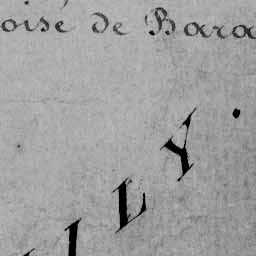 oisé de Bara
ILY.